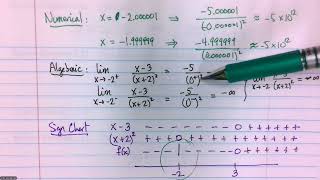 Numerical: x = -2.000001 ⇒ -5.000001 / (-0.000001)² ≈ -5×10¹²
x = -1.999999 ⇒ -4.999999 / (0.000001)² ≈ -5×10¹²
Algebraic: lim x→-2⁺ x-3 / (x+2)² = -5 / (0⁺)²
lim x→-2⁻ x-3 / (x+2)² = -5 / (0⁻)² = -∞ lim x→-2 x-3 / (x+2)²
Sign Chart x-3 - - - - - - - - - - 0 + + + + +
(x+2)² + + + + 0 + + + + + + + +
f(x) - - - - - - - - - 0 + + + + +
-2 3